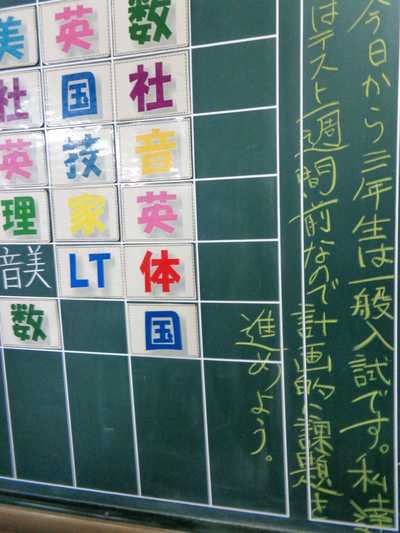 今日から三年生は一般入試です。私達
はテスト一週間前なので計画的に課題を
進めよう。
美 英 数
社 国 社
英 技 音
理 家 英
音美 LT 体
数 国